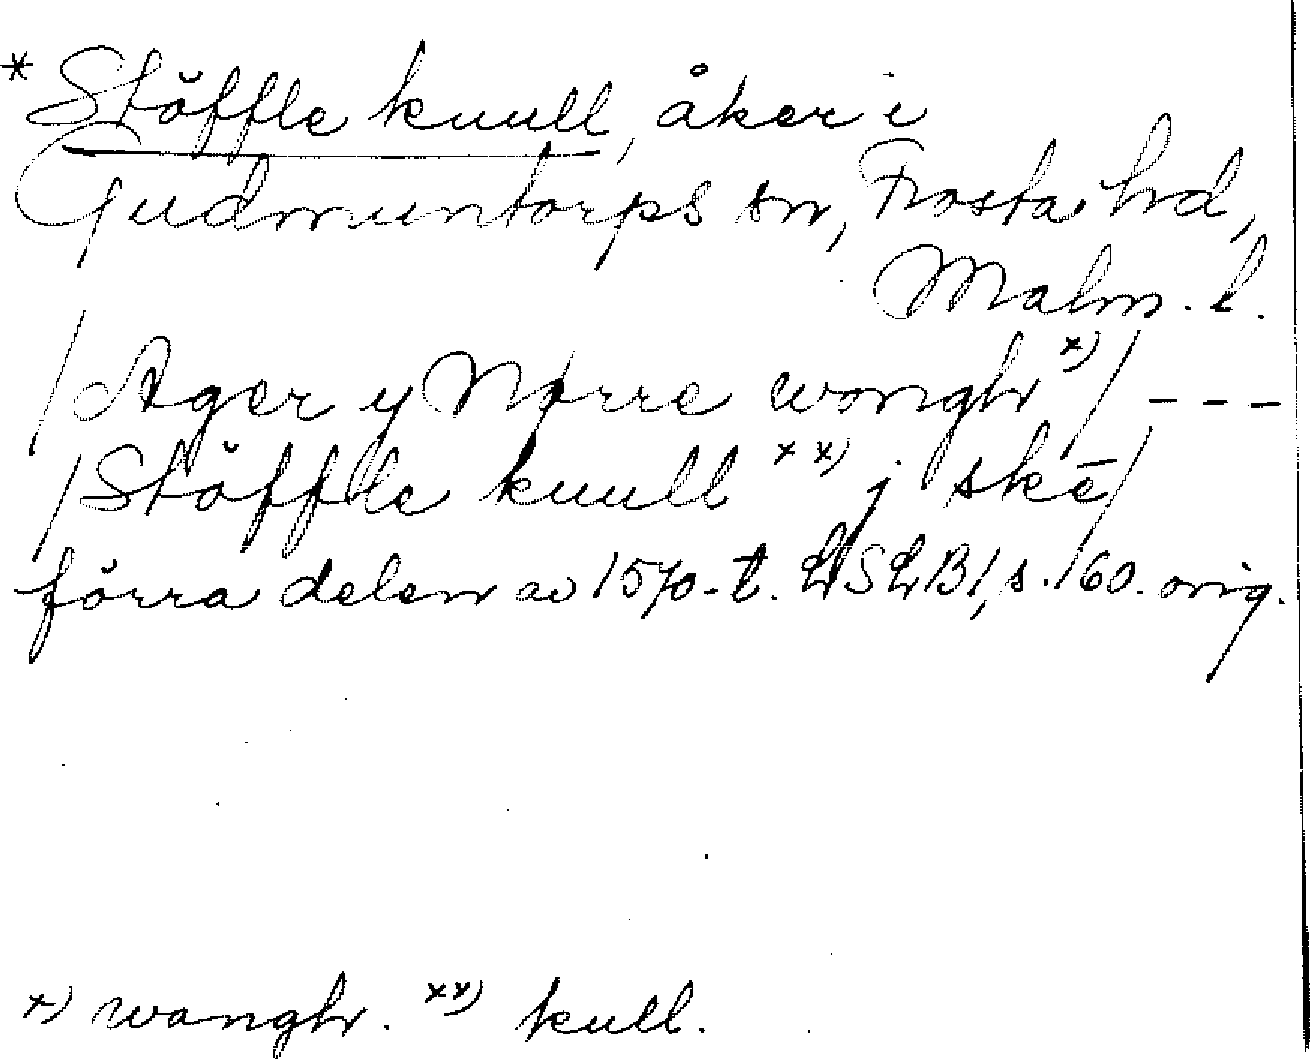 * Stöffle kuull, åker i
Gudmuntorps sn, Frosta hd,
Malm. l.
/Ager y Nørre wongh x)/ ---
/Stöffle kuull xx) j skē/
förra delen av 1570-t. LSLB1, s. 160. orig.
x) wangh. xx) kull.